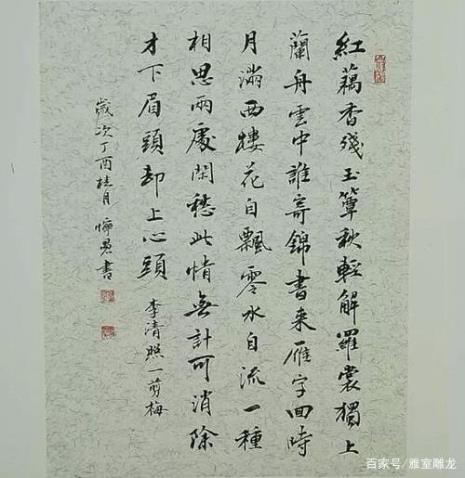 紅藕香殘玉簟秋輕解羅裳獨上
蘭舟雲中誰寄錦書来雁字回時
月滿西樓花自飄零水自流一種
相思兩處閑愁此情無計可消除
才下眉頭却上心頭 李清照一剪梅
歲次丁酉桂月 書
百家号/雅室雕龙